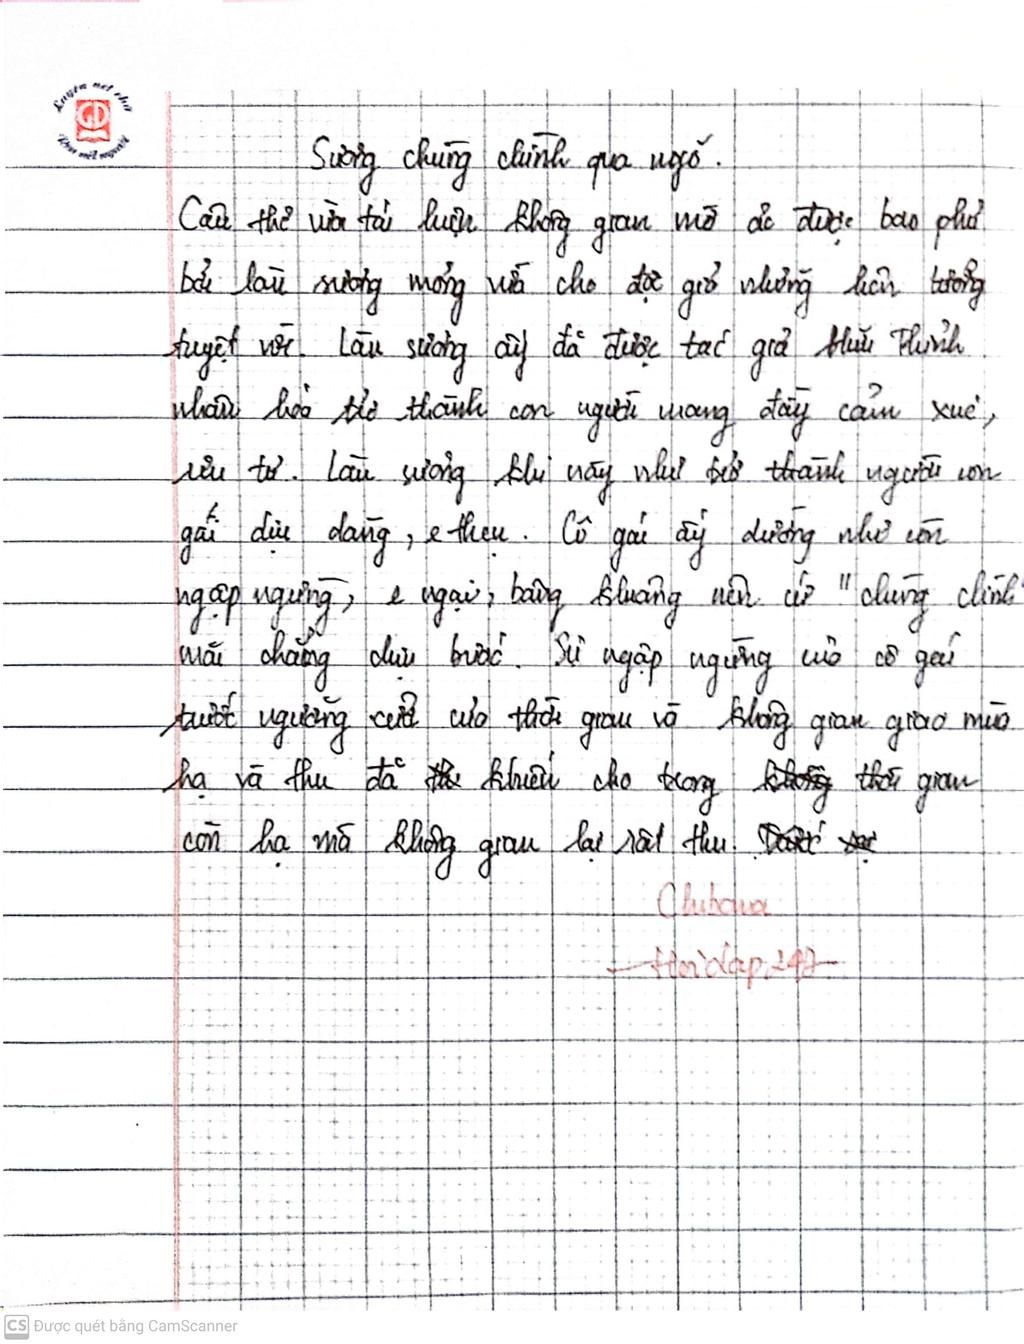 Luyện nét chữ
GD
Rèn nết người
Sương chùng chình qua ngõ.
Câu thơ vừa tái hiện không gian mờ ảo được bao phủ
bởi làn sương mỏng vừa cho độc giả những liên tưởng
tuyệt vời. Làn sương ấy đã được tác giả Hữu Thỉnh
nhân hóa trở thành con người mang đầy cảm xúc,
ưu tư. Làn sương khi này như trở thành người con
gái dịu dàng, e thẹn. Cô gái ấy dường như còn
ngập ngừng, e ngại, bâng khuâng nên cứ "chùng chình"
mãi chẳng chịu bước. Sự ngập ngừng của cô gái
trước ngưỡng cửa của thời gian và không gian giao mùa
hạ và thu đã khiến cho trong thời gian
còn hạ mà không gian lại rất thu.
Chibowa
Hoidap247
CS Được quét bằng CamScanner